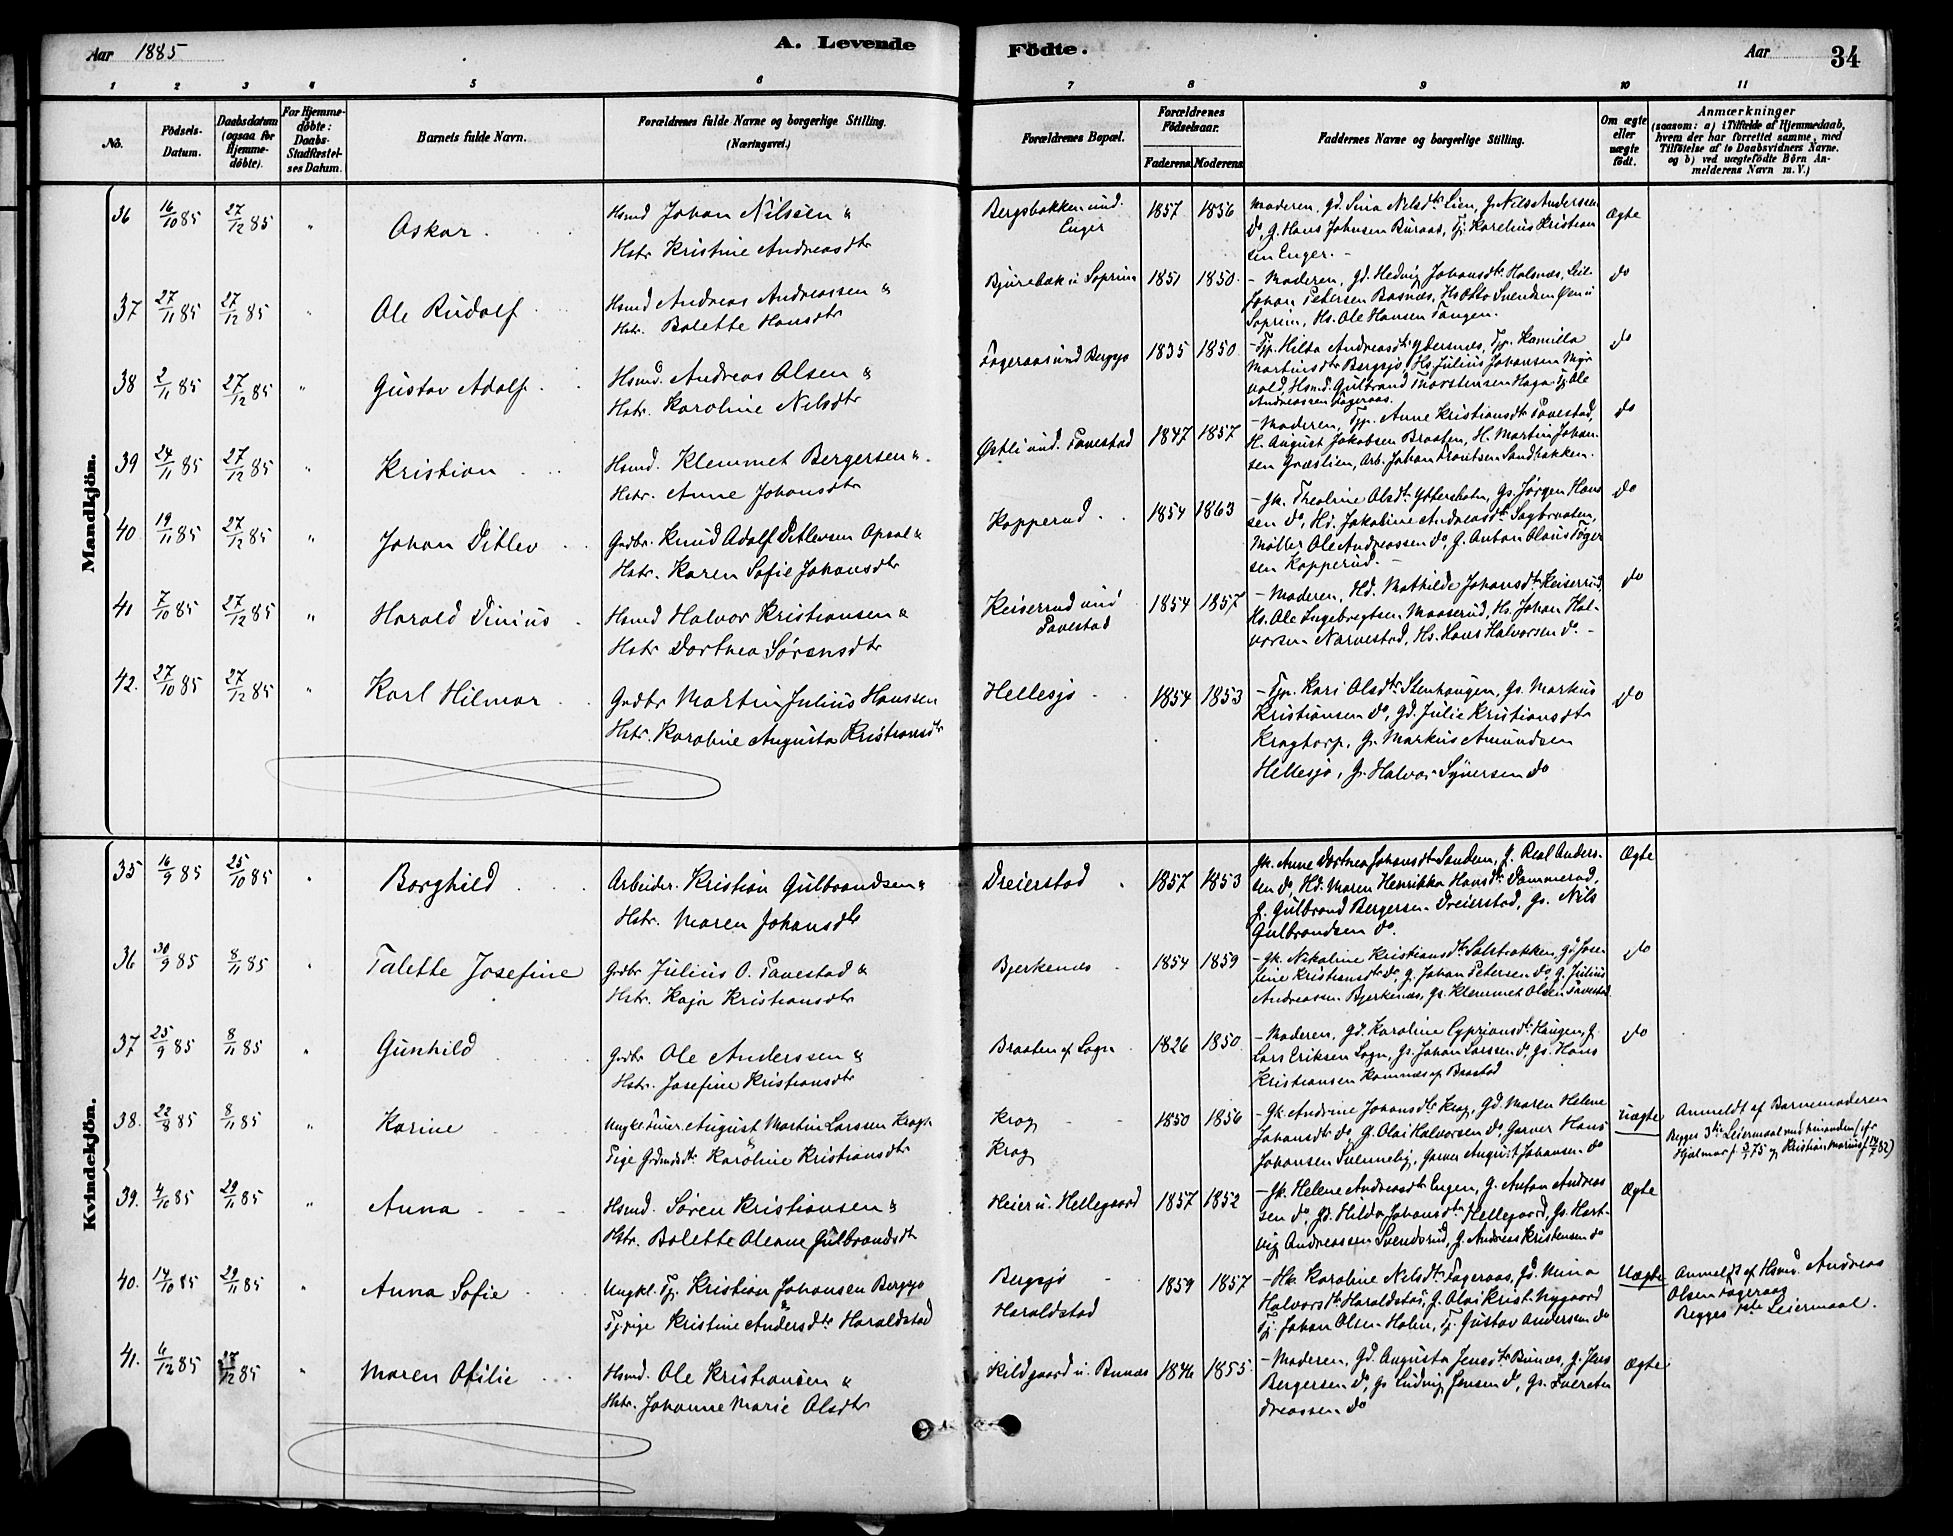 Aar 1885
A. Levende Födte.
Aar 34
1 2 3 4 5 6 7 8 9 10 11
No.
Födsels-Datum.
Daabsdatum (ogsaa for Hjemmedöbte).
For Hjemmedöbte: Daabs-Stadfæstelses Datum.
Barnets fulde Navn.
Forældrenes fulde Navne og borgerlige Stilling. (Næringsvei.)
Forældrenes Bopæl.
Forældrenes Födselsaar.
Faderens Moderens
Faddernes Navne og borgerlige Stilling.
Om ægte eller uægte födt.
Anmærkninger
(saasom: a) i Tilfælde af Hjemmedaab, hvem der har forrettet samme, med Tilföielse af to Daabsvidners Navne. og b) ved uægtefödte Börn Anmelderens Navn m. V.)
Mandkjön.
36 16/10 85 27/12 85 " Oskar Hsmd Johan Nilsen &
Hstr Kristine Andreasdtr
Bergsbakken und. Enger 1857 1856
Moderen, Gd. Lina Nilsdtr Lien, G. Nils Anderssen
do, G. Hans Johnsen Buraas, Tj. Karelius Kristian
sen Enger. -
Ægte
37 27/11 85 27/12 85 " Ole Rudolf Hsmd Andreas Andreassen &
Hstr. Bolette Hansdtr
Bjurebæk u Soprim 1851 1850
- Moderen, Gd. Hedvig Johansdtr Halsnæs,
Johan Petersen Basnæs, Hs Otto Svendsen Øen u
Soprim, Hs. Ole Hansen Tangen.
do
38 2/11 85 27/12 85 " Gustav Adolf Hsmd. Andreas Olsen &
Hstr. Karoline Nilsdtr
Fageraas und Bergsjø 1835 1850
- Tjp. Hilda Andreasdtr Ydersnæs, Tjp. Kamilla
Martinsdtr Bergsjø, Hs Julius Johansen Myr
vold, Hsmd. Gulbrand Thorstensen Haga Tj Ole
Andreassen Fageraas.
do
39 24/11 85 27/12 85 " Kristian Hsmd. Klemmet Bergersen &
Hstr. Anne Johansdtr
Østli und. Tavestad 1847 1857
- Moderen, Tjp. Anne Kristiansdtr Tavestad,
H. August Jakobsen Braaten, H. Martin Johan-
sen Græslien, Arb. Johan Lauritsen Sandbakken.
do
40 19/11 85 27/12 85 " Johan Ditlev Grdbr. Knud Adolf Ditlevsen Opsal &
Hstr. Karen Sofie Johansdtr
Kopperud 1854 1863
- Gk. Theoline Olsdtr Ytterholm, Gs. Jørgen Hans
sen do, Hd. Jakobine Andreasdtr Sagbraaten,
Møller Ole Andreassen do, G. Anton Olaus Tøger
sen Kopperud. -
do
41 7/10 85 27/12 85 " Harald Dinius Hsmd Halvor Kristiansen &
Hstr Dorthea Sørensdtr
Keiserud und Tavestad 1854 1857
- Moderen, Hd. Mathilde Johansdtr Keiserud,
Hs. Ole Ingebregtsen Maaserud, Hs. Johan Hal-
vorsen Narvestad, Hs. Hans Halvorsen do. -
do
42. 27/10 85 27/12 85 " Karl Hilmar Grdbr Martin Julius Hanssen
Hstr. Karoline Augusta Kristiansdtr
Hellesjø 1854 1853
- Tjp. Kari Olsdtr Stenhaugen, Gs. Markus
Kristiansen do, Gd. Julie Kristiansdtr
Kragtorp, G. Markus Amundsen
Hellesjø, G. Halvor Syversen do
do
Kvindekjön.
35 16/9 85 25/10 85 " Borghild Arbeider. Kristian Gulbrandsen &
Hstr. Maren Johansdtr
Dreierstad 1857 1853
Gk. Anne Dorthea Johansdtr Sandem, G. Real Anders-
sen do, Hd. Maren Henrikka Hansdtr Dammerud,
G. Gulbrand Bergersen Dreierstad, Gs. Nils
Gulbrandsen do.
Ægte
36 30/9 85 8/11 85 " Talette Josefine Grdbr Julius O. Tavestad &
Hstr. Kaja Kristiansdtr
Bjerkenæs 1854 1859
- Gk. Nikoline Kristiansdtr Solstrækken, Gd. Jose-
fine Kristiansdtr do, G. Johan Petersen do, G. Julius
Andreassen Bjerkenæs, Gs. Klemmet Olsen Tavestad
do
37 25/9 85 8/11 85 " Gunhild Grdbr Ole Anderssen &
Hstr. Josefine Kristiansdtr
Braaten af Sogn 1826 1850
- Moderen, Gd. Karoline Cypriansdtr Haugen, G.
Lars Eriksen Sogn, Gs. Johan Larssen do, Gs. Hans
Kristiansen Kamnæs af Brastad
do
38. 22/8 85 8/11 85 " Karine Ungk. Snur. August Martin Larssen Krog &
Pige Grdmdtr. Karoline Kristiansdtr
Krog
Krog
1850 1856
- Gk. Andrine Johansdtr Krog, Gd. Maren Helene
Johansdtr do, G. Olai Halvorsen do, Garver Hans
Johansen Svenneby, Garver August Johansen do
uægte
Anmeldt af Barnemoderen
Begges 3die Leiermaal med hinanden (cfr
Hjalmar f 3/1 75 og Kristian Marius f 14/7 82)
39. 4/10 85 29/11 85 " Anna Hsmd. Søren Kristiansen &
Hstr. Bolette Oleane Gulbrandsdtr
Heier u. Hellegaard 1857 1852
- Gk. Helene Andreasdtr Engen, G. Anton Andreas
sen do, Gd. Hilda Johansdtr Hellegaard, Gs. Hart-
vig Andreassen Svendsrud, G. Andreas Kristensen do
Ægte
40. 14/10 85 29/11 85 " Anna Sofie Ungkl. Tj. Kristian Johansen Bergsjø
&
Tj.pige Kristine Andersdtr Haraldstad
Bergsjø
Haraldstad
1859 1857
- Hk. Karoline Nilsdtr Fageraas, Gd. Mina
Halvorsdtr Haraldstad, G. Olai Krist. Nygaard
Tj. Johan Olsen Holm, Tj. Gustav Andersen do
Uægte
Anmeldt af Hsmd. Andreas
Olsen Fageraas
Begges 1ste Leiermaal.
41. 6/12 85 27/12 85 " Maren Otilie Hsmd. Ole Kristiansen &
Hstr. Johanne Marie Olsdtr
Kildgaard u. Bunæs 1846 1855
- Moderen, Gd. Augusta Jensdtr Bunæs, G. Jens
Bergersen do, Gs Ludvig Jensen do, Gs. Iver An
dreassen do
Ægte